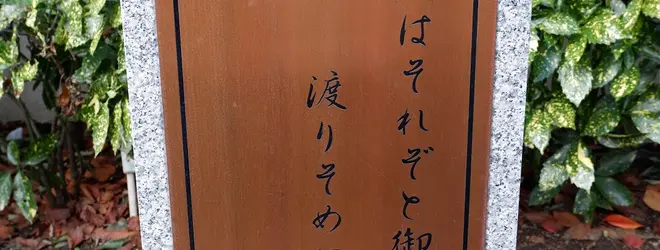 はそれぞと御
渡りそめ